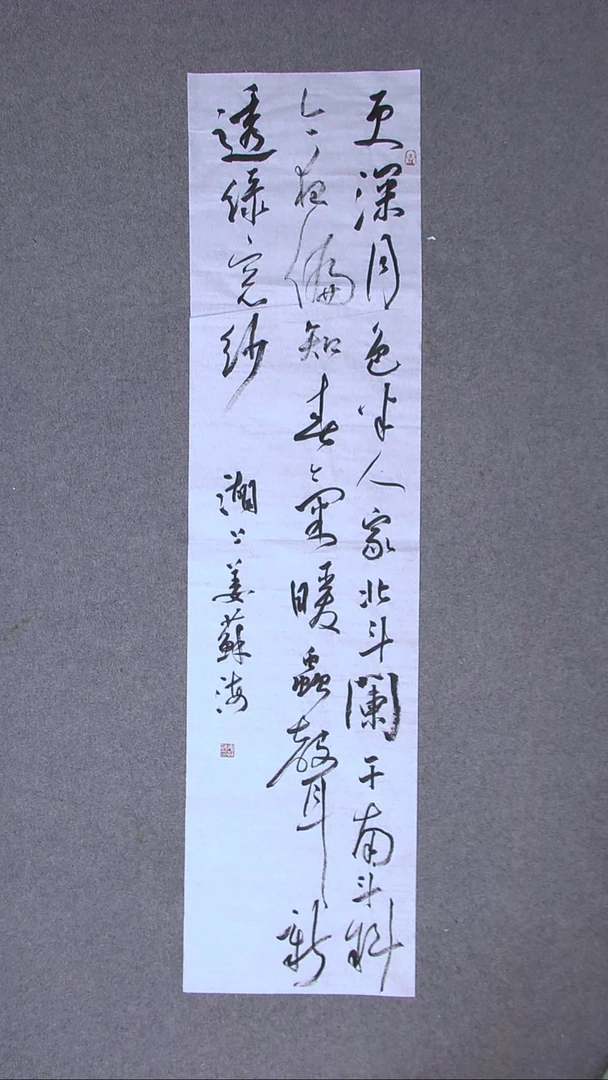 更深月色半人家北斗闌干南斗斜
今夜偏知春氣暖蟲聲新
透綠窓紗
湖上姜蘇海